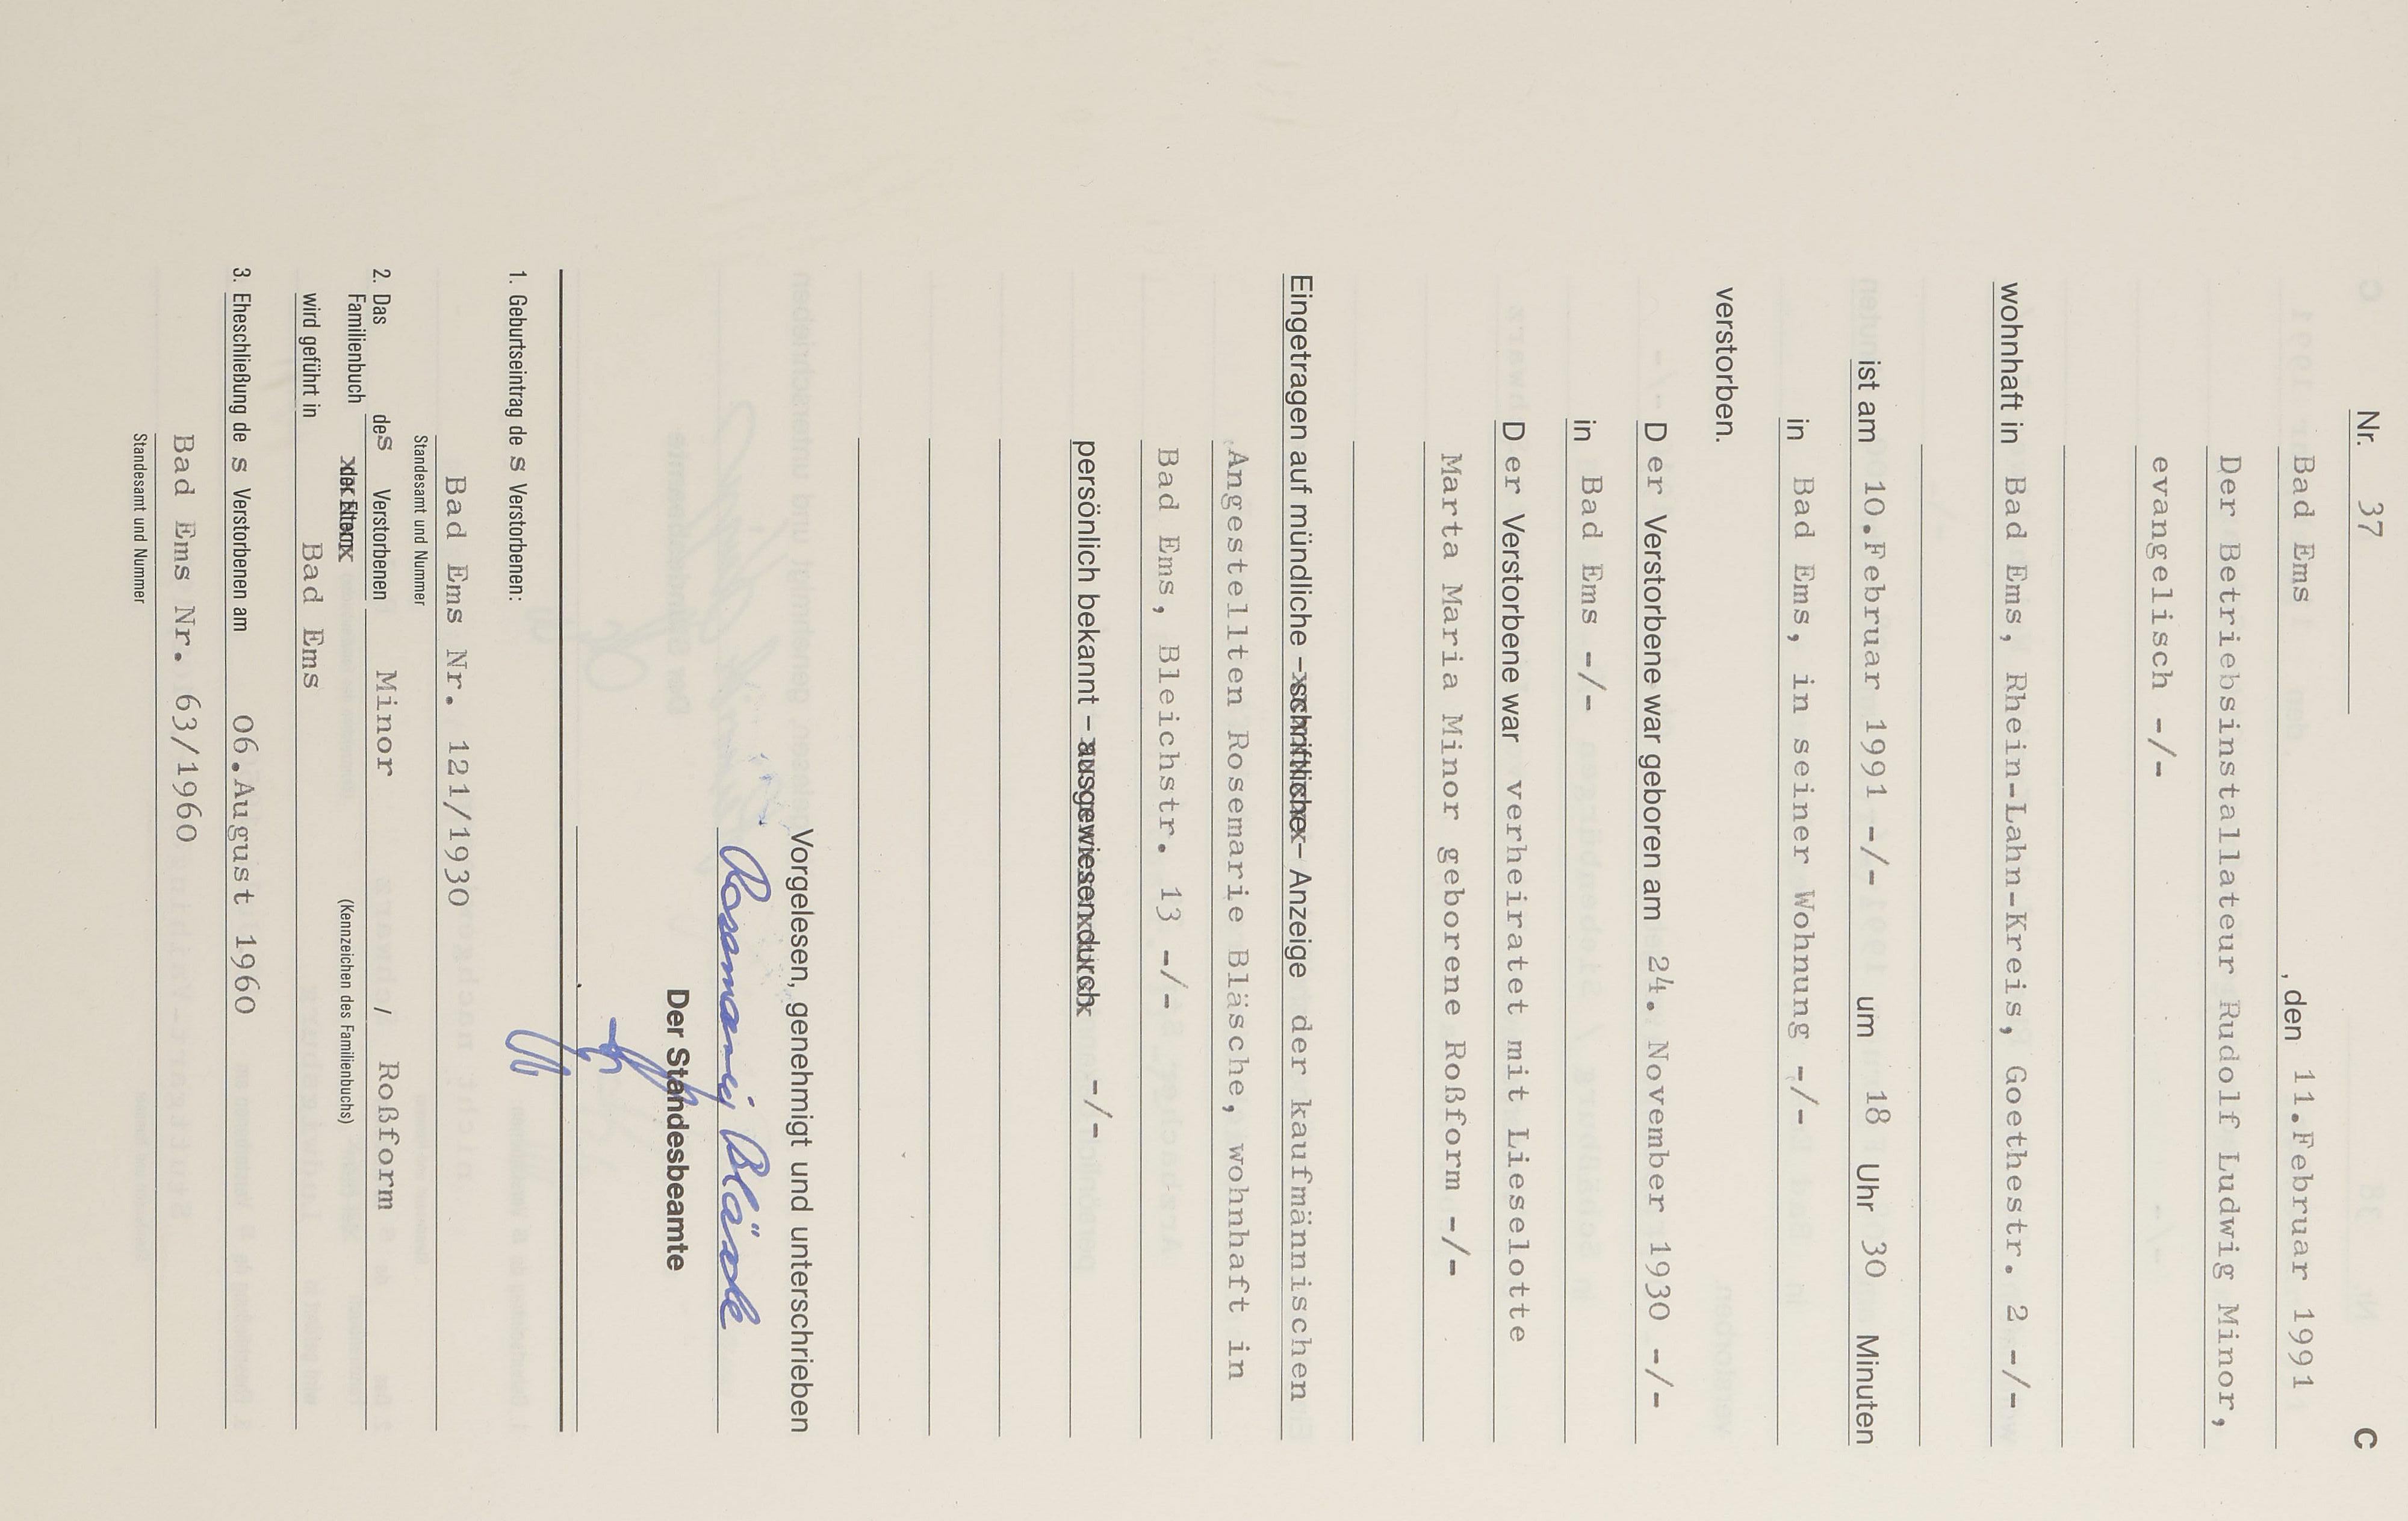 Nr. 37 C
Bad Ems , den 11.Februar 1991
Der Betriebsinstallateur Rudolf Ludwig Minor,
evangelisch -/-
wohnhaft in Bad Ems, Rhein-Lahn-Kreis, Goethestr. 2 -/-
ist am 10.Februar 1991 -/- um 18 Uhr 30 Minuten
in Bad Ems, in seiner Wohnung -/-
verstorben.
D er Verstorbene war geboren am 24. November 1930 -/-
in Bad Ems -/-
D er Verstorbene war verheiratet mit Lieselotte
Marta Maria Minor geborene Roßform -/-
Eingetragen auf mündliche – schriftliche – Anzeige der kaufmännischen
Angestellten Rosemarie Bläsche, wohnhaft in
Bad Ems, Bleichstr. 13 -/-
persönlich bekannt – ausgewiesen durch -/-
Vorgelesen, genehmigt und unterschrieben
Rosemarie Bläsche
Der Standesbeamte
1. Geburtseintrag de s Verstorbenen:
Bad Ems Nr. 121/1930
Standesamt und Nummer
2. Das Familienbuch des Verstorbenen Minor / Roßform
der Eltern (Kennzeichen des Familienbuchs)
wird geführt in Bad Ems
3. Eheschließung de s Verstorbenen am 06.August 1960
Bad Ems Nr. 63/1960
Standesamt und Nummer